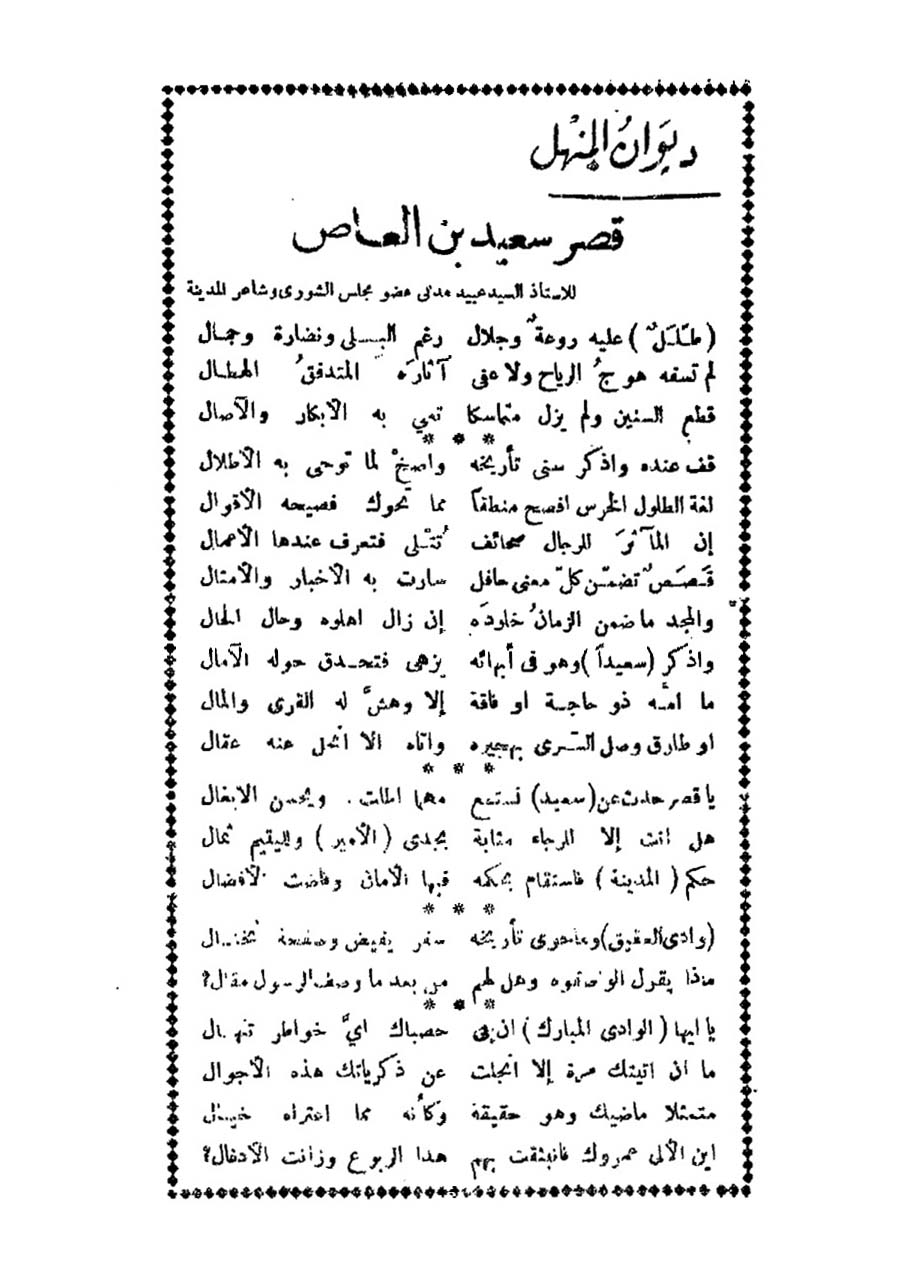 ديوان المنهل
قصر سعيد بن العاص
للاستاذ السيد عبيد مدني عضو مجلس الشورى وشاعر المدينة
(طَلَلٌ) عليه روعةٌ وجلال رغم البلى ونضارة وجمال
لم تسفه هوجُ الرياح ولا عفى آثارَه المتدفقُ الهطال
قطع السنين ولم يزل متماسكا تمي به الأبكار والآصال
* * *
قف عنده واذكر سنى تأريخه واصخْ لما توحى به الأطلال
لغة الطلول الخرس افصح منطقاً مما تحوك فصيحه الأقوال
إن المآثرَ للرجال صحائف تُتْلى فتعرف عندها الأعمال
قَصَصٌ تضمّن كلّ معنى حافل سارت به الأخبار والأمثال
والمجد ما ضمن الزمانُ خلودَه إن زال اهلوه وحال الحال
واذكر (سعيداً) وهو فى أبهائه يزهى فتحدق حوله الآمال
ما امّه ذو حاجة او فاقة إلا وهشَّ له القرى والمال
او طارق وصل السّرى بهجيره واتاه الا انحل عنه عقال
* * *
يا قصر حدث عن (سعيد) نستمع مهما اطلت . ويحسن الايغال
هل انت إلا للرجاء مثابة بجدى (الأمير) ولليتيم ثمال
حكم (المدينة) فاستقام بحكمه فيها الأمان وفاضت الأفضال
* * *
(وادى العقيق) وما حوى تأريخه سفر يفيض وصفحة تختال
ماذا يقول الواصفوه وهل لهم من بعد ما وصف الرسول مقال؟
* * *
يا ايها (الوادى المبارك) ان فى حصباك ايَّ خواطر تنهال
ما ان اتيتك مرة إلا انجلت عن ذكرياتك هذه الأجوال
متمثلا ماضيك وهو حقيقة وكأنه مما اعتراه خيال
اين الألى عمروك فانبثقت بهم هذا الربوع وزانت الأدغال؟